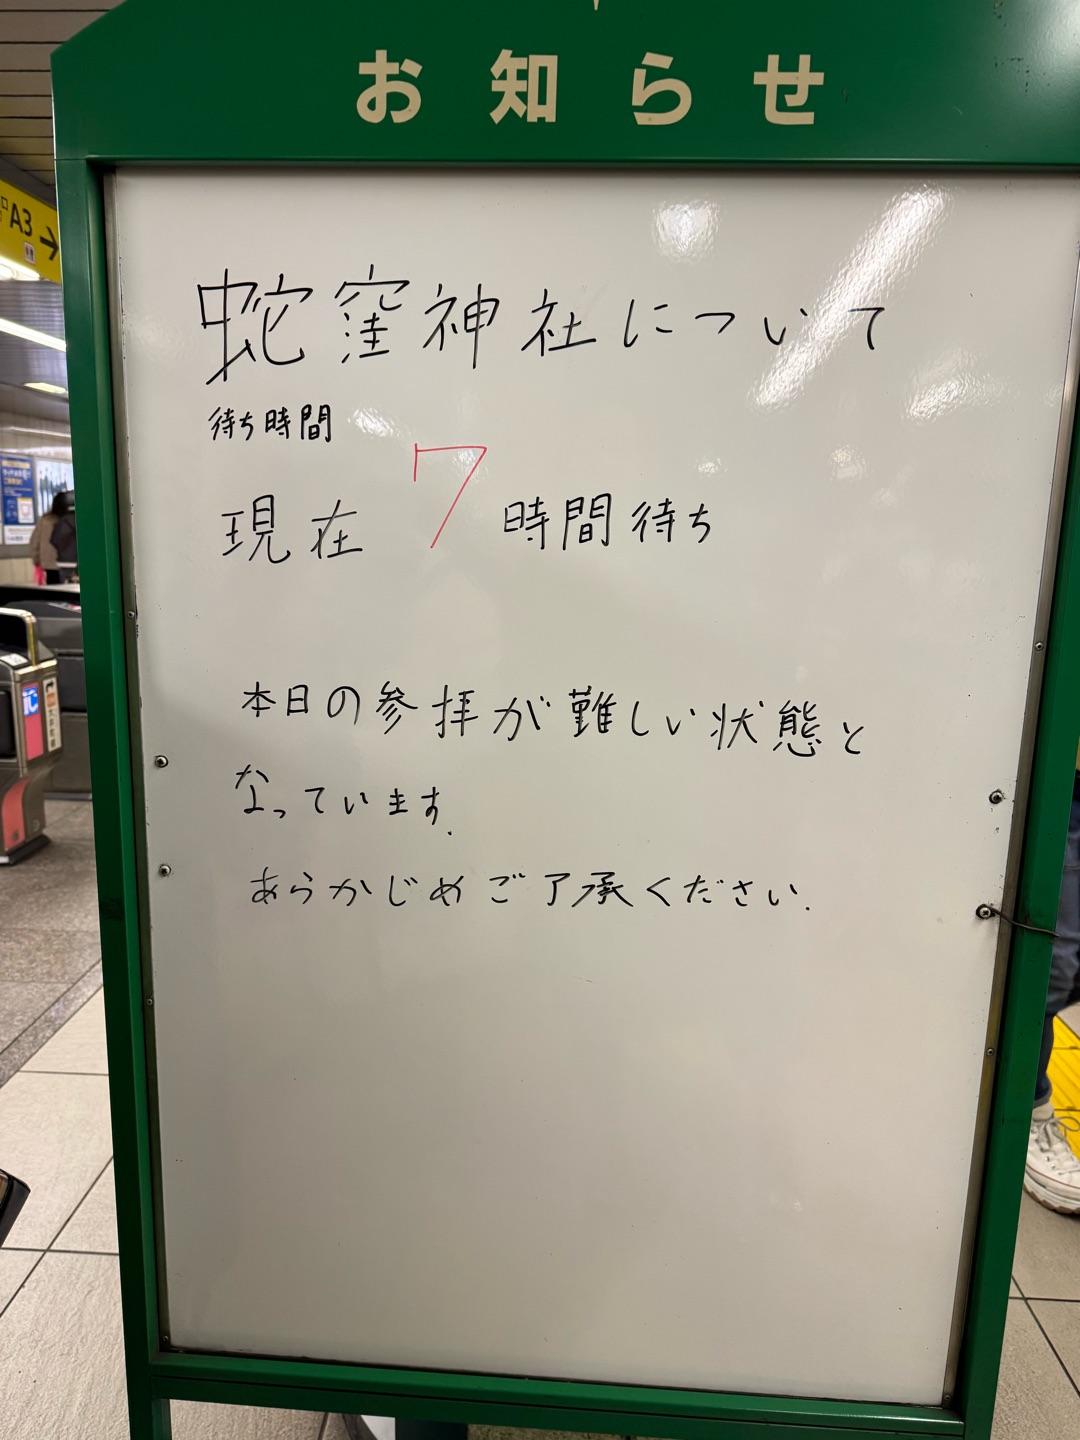 お知らせ
蛇窪神社について
待ち時間
現在 7 時間待ち
本日の参拝が難しい状態と
なっています.
あらかじめご了承ください.
A3→
IC